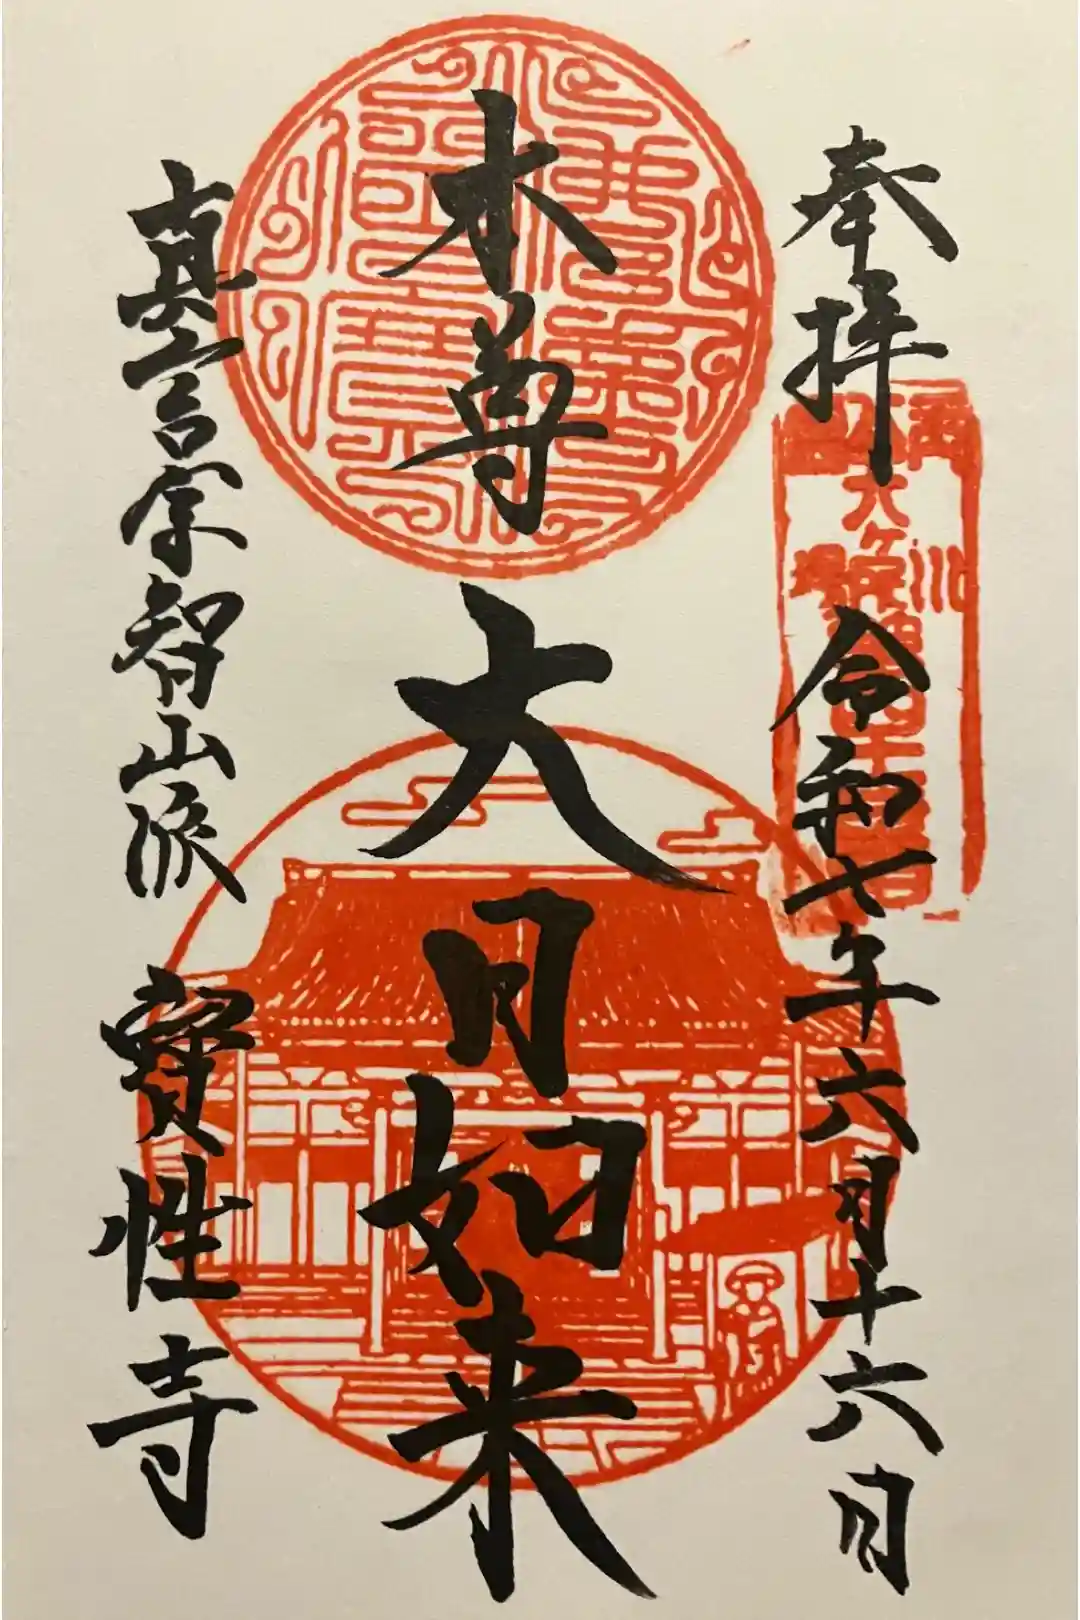 奉拝
令和七年六月十六日
本尊
大日如来
真言宗智山派
寶性寺